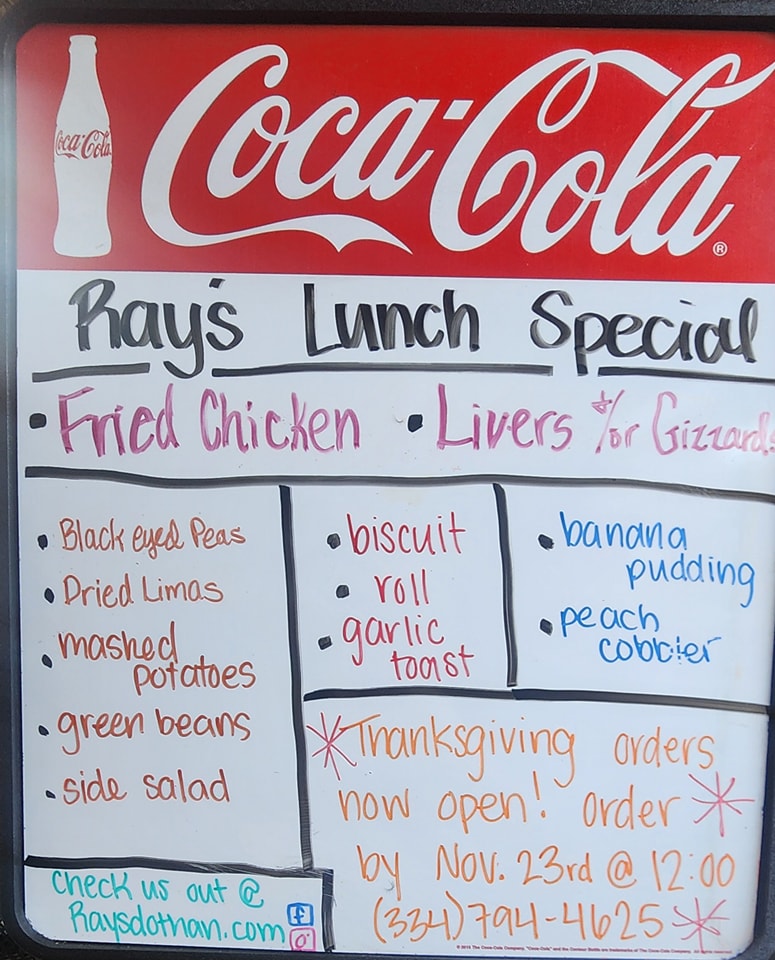 Coca-Cola
Coca-Cola®
Ray's Lunch Special
• Fried Chicken • Livers &/or Gizzards
• Black eyed Peas
• Dried Limas
• mashed
potatoes
• green beans
• side salad
• biscuit
• roll
• garlic
toast
• banana
pudding
• peach
cobbler
*Thanksgiving orders
now open! order *
by Nov. 23rd @ 12:00
(334)794-4625 *
check us out @
Raysdothan.com f
© 2015 The Coca-Cola Company. "Coca-Cola" and the Contour Bottle are trademarks of The Coca-Cola Company. All rights reserved.